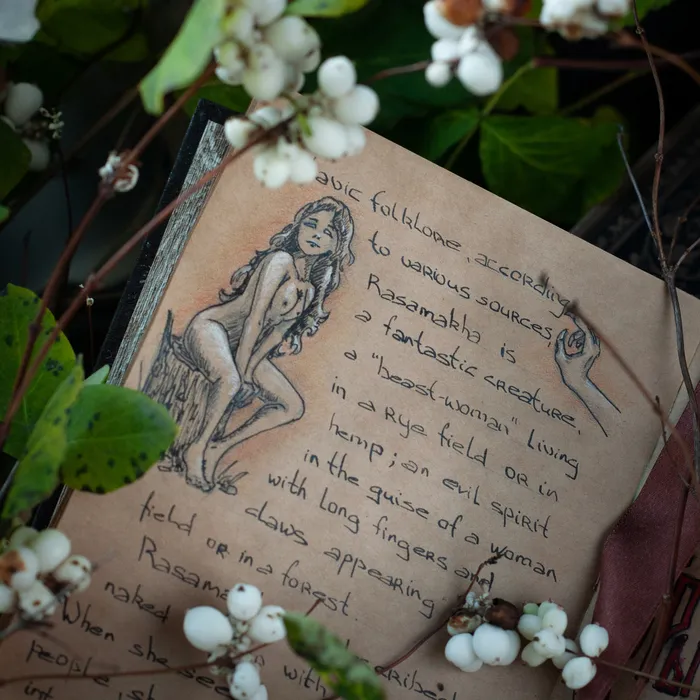 avic folklore, according
to various sources,
Rasamakha is
a fantastic creature,
a "beast-woman" living
in a rye field or in
hemp; an evil spirit
in the guise of a woman
with long fingers and
claws appearing
field or in a forest.
Rasama
naked
When she see
people, sh with scribe
int